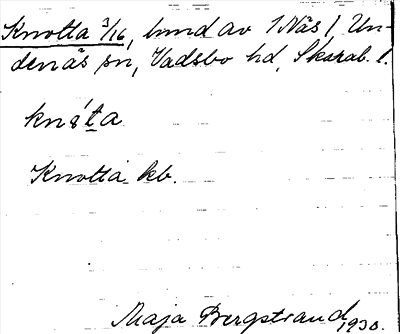 Knotta 3/16, lund av 1 Näs l, Un-
denäs sn, Vadsbo hd, Skarab. l.
Knotta kb.
Maja Bergstrand, 1930.